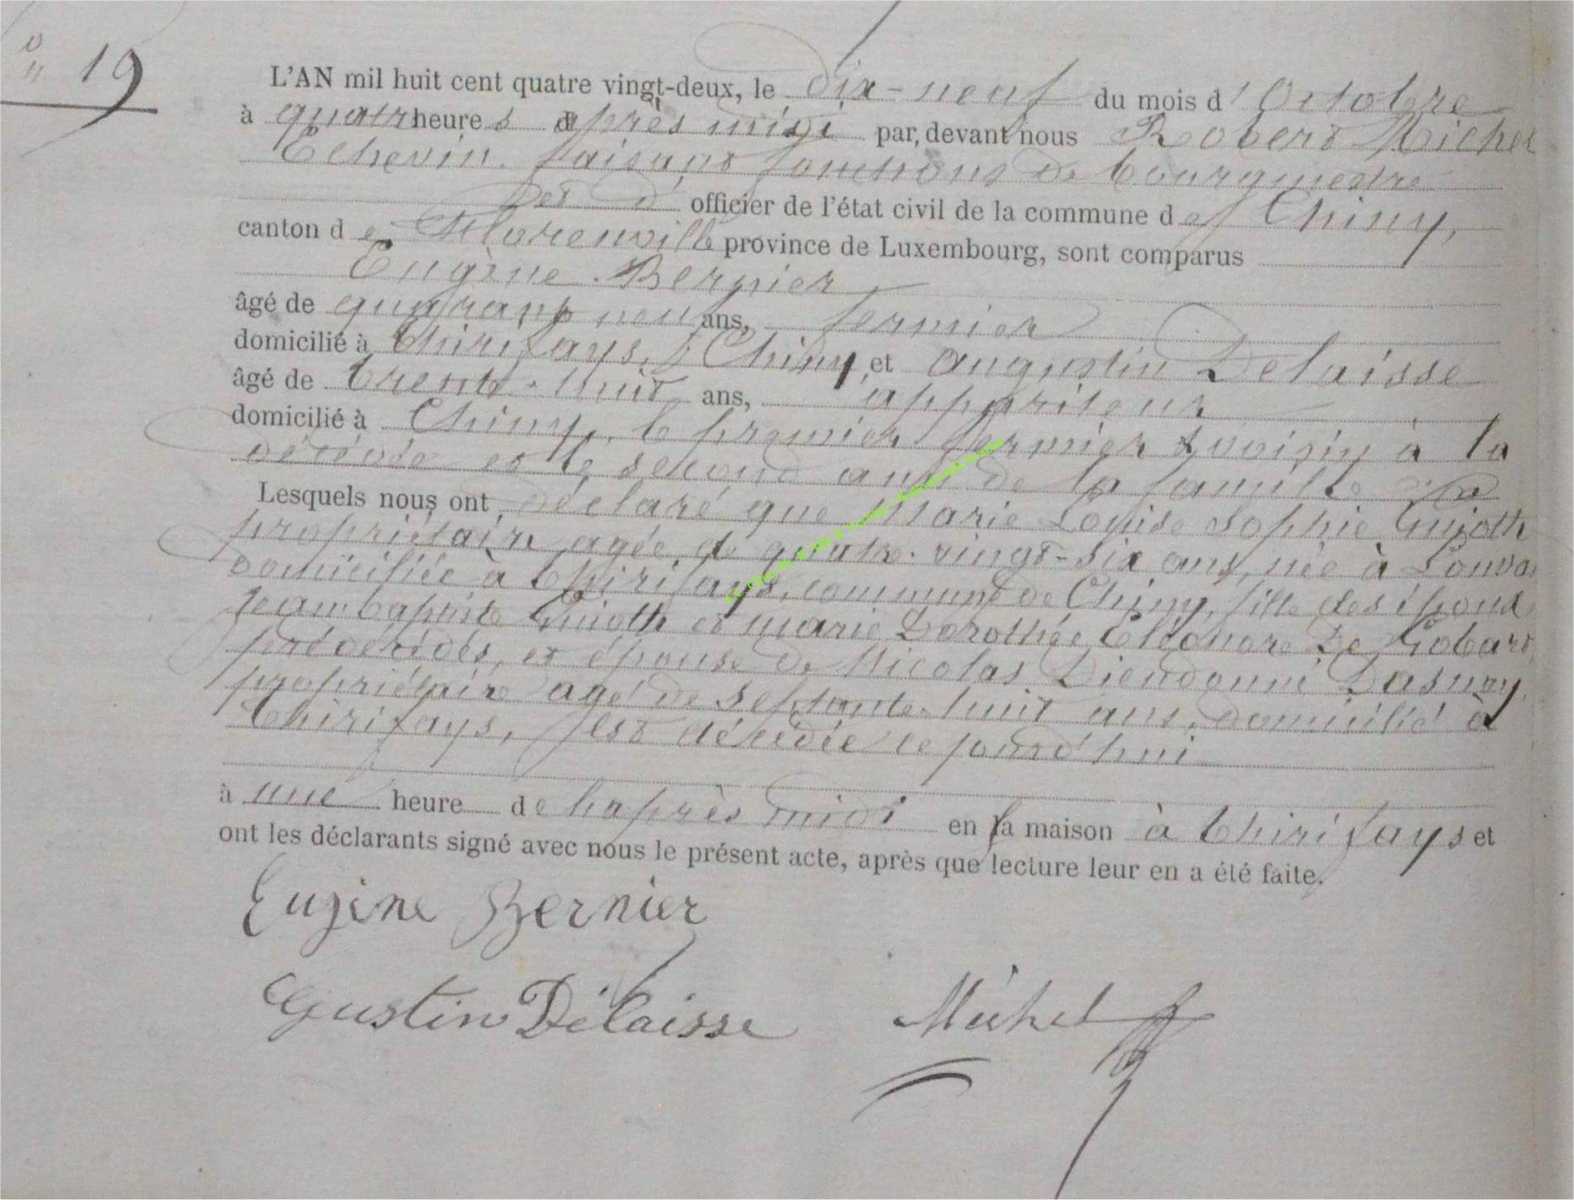 N° 19
L'AN mil huit cent quatre vingt-deux, le dix-neuf du mois d'Octobre
à quatre heures après midi par, devant nous Robert Michel
Echevin faisant fonctions de bourgmestre
et d' officier de l'état civil de la commune de Chiny,
canton de Florenville province de Luxembourg, sont comparus
Eugène Bernier
âgé de quarante neuf ans, fermier
domicilié à Thirifays, Chiny et Augustin Delaisse
âgé de trente-huit ans, appariteur
domicilié à Chiny, le premier fermier & voisin à la
décédée et le second ami de la famille
Lesquels nous ont déclaré que Marie Louise Sophie Guioth
propriétaire agée de quatre-vingt-six ans, née à
domiciliée à Thirifays, commune de Chiny, fille des époux
Jean baptiste Guioth et marie Dorothée Eléonore De
prédécédés, et épouse de Nicolas Dieudonné Dasnoy,
propriétaire agé de septante-huit ans, domicilié à
Thirifays, est décédée ce jourd'hui
à une heure de l'après midi en sa maison à Thirifays et
ont les déclarants signé avec nous le présent acte, après que lecture leur en a été faite.
Eugène Bernier
Gustin Delaisse Michel